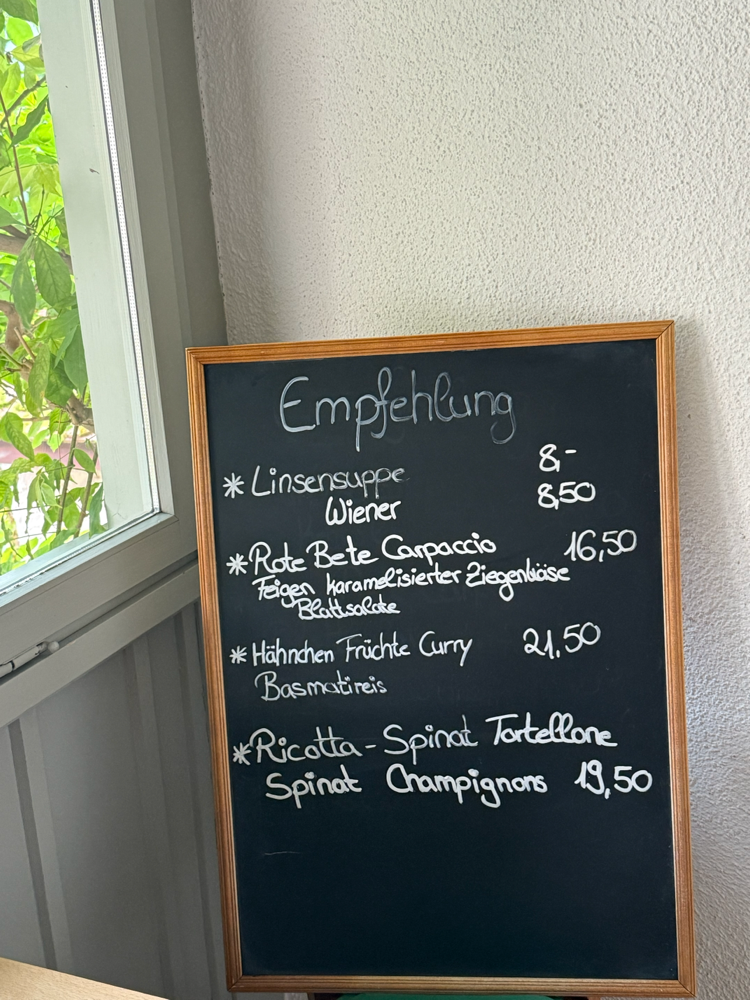 Empfehlung
* Linsensuppe 8,-
Wiener 8,50
* Rote Bete Carpaccio 16,50
Feigen karamelisierter Ziegenkäse
Blattsalate
* Hähnchen Früchte Curry 21,50
Basmatireis
* Ricotta-Spinat Tortellone
Spinat Champignons 19,50